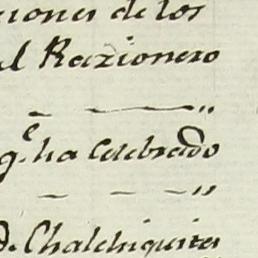 ciones de los
el Razionero
— — "
q.e ha celebrado
— — — "
d. Chalchiquites